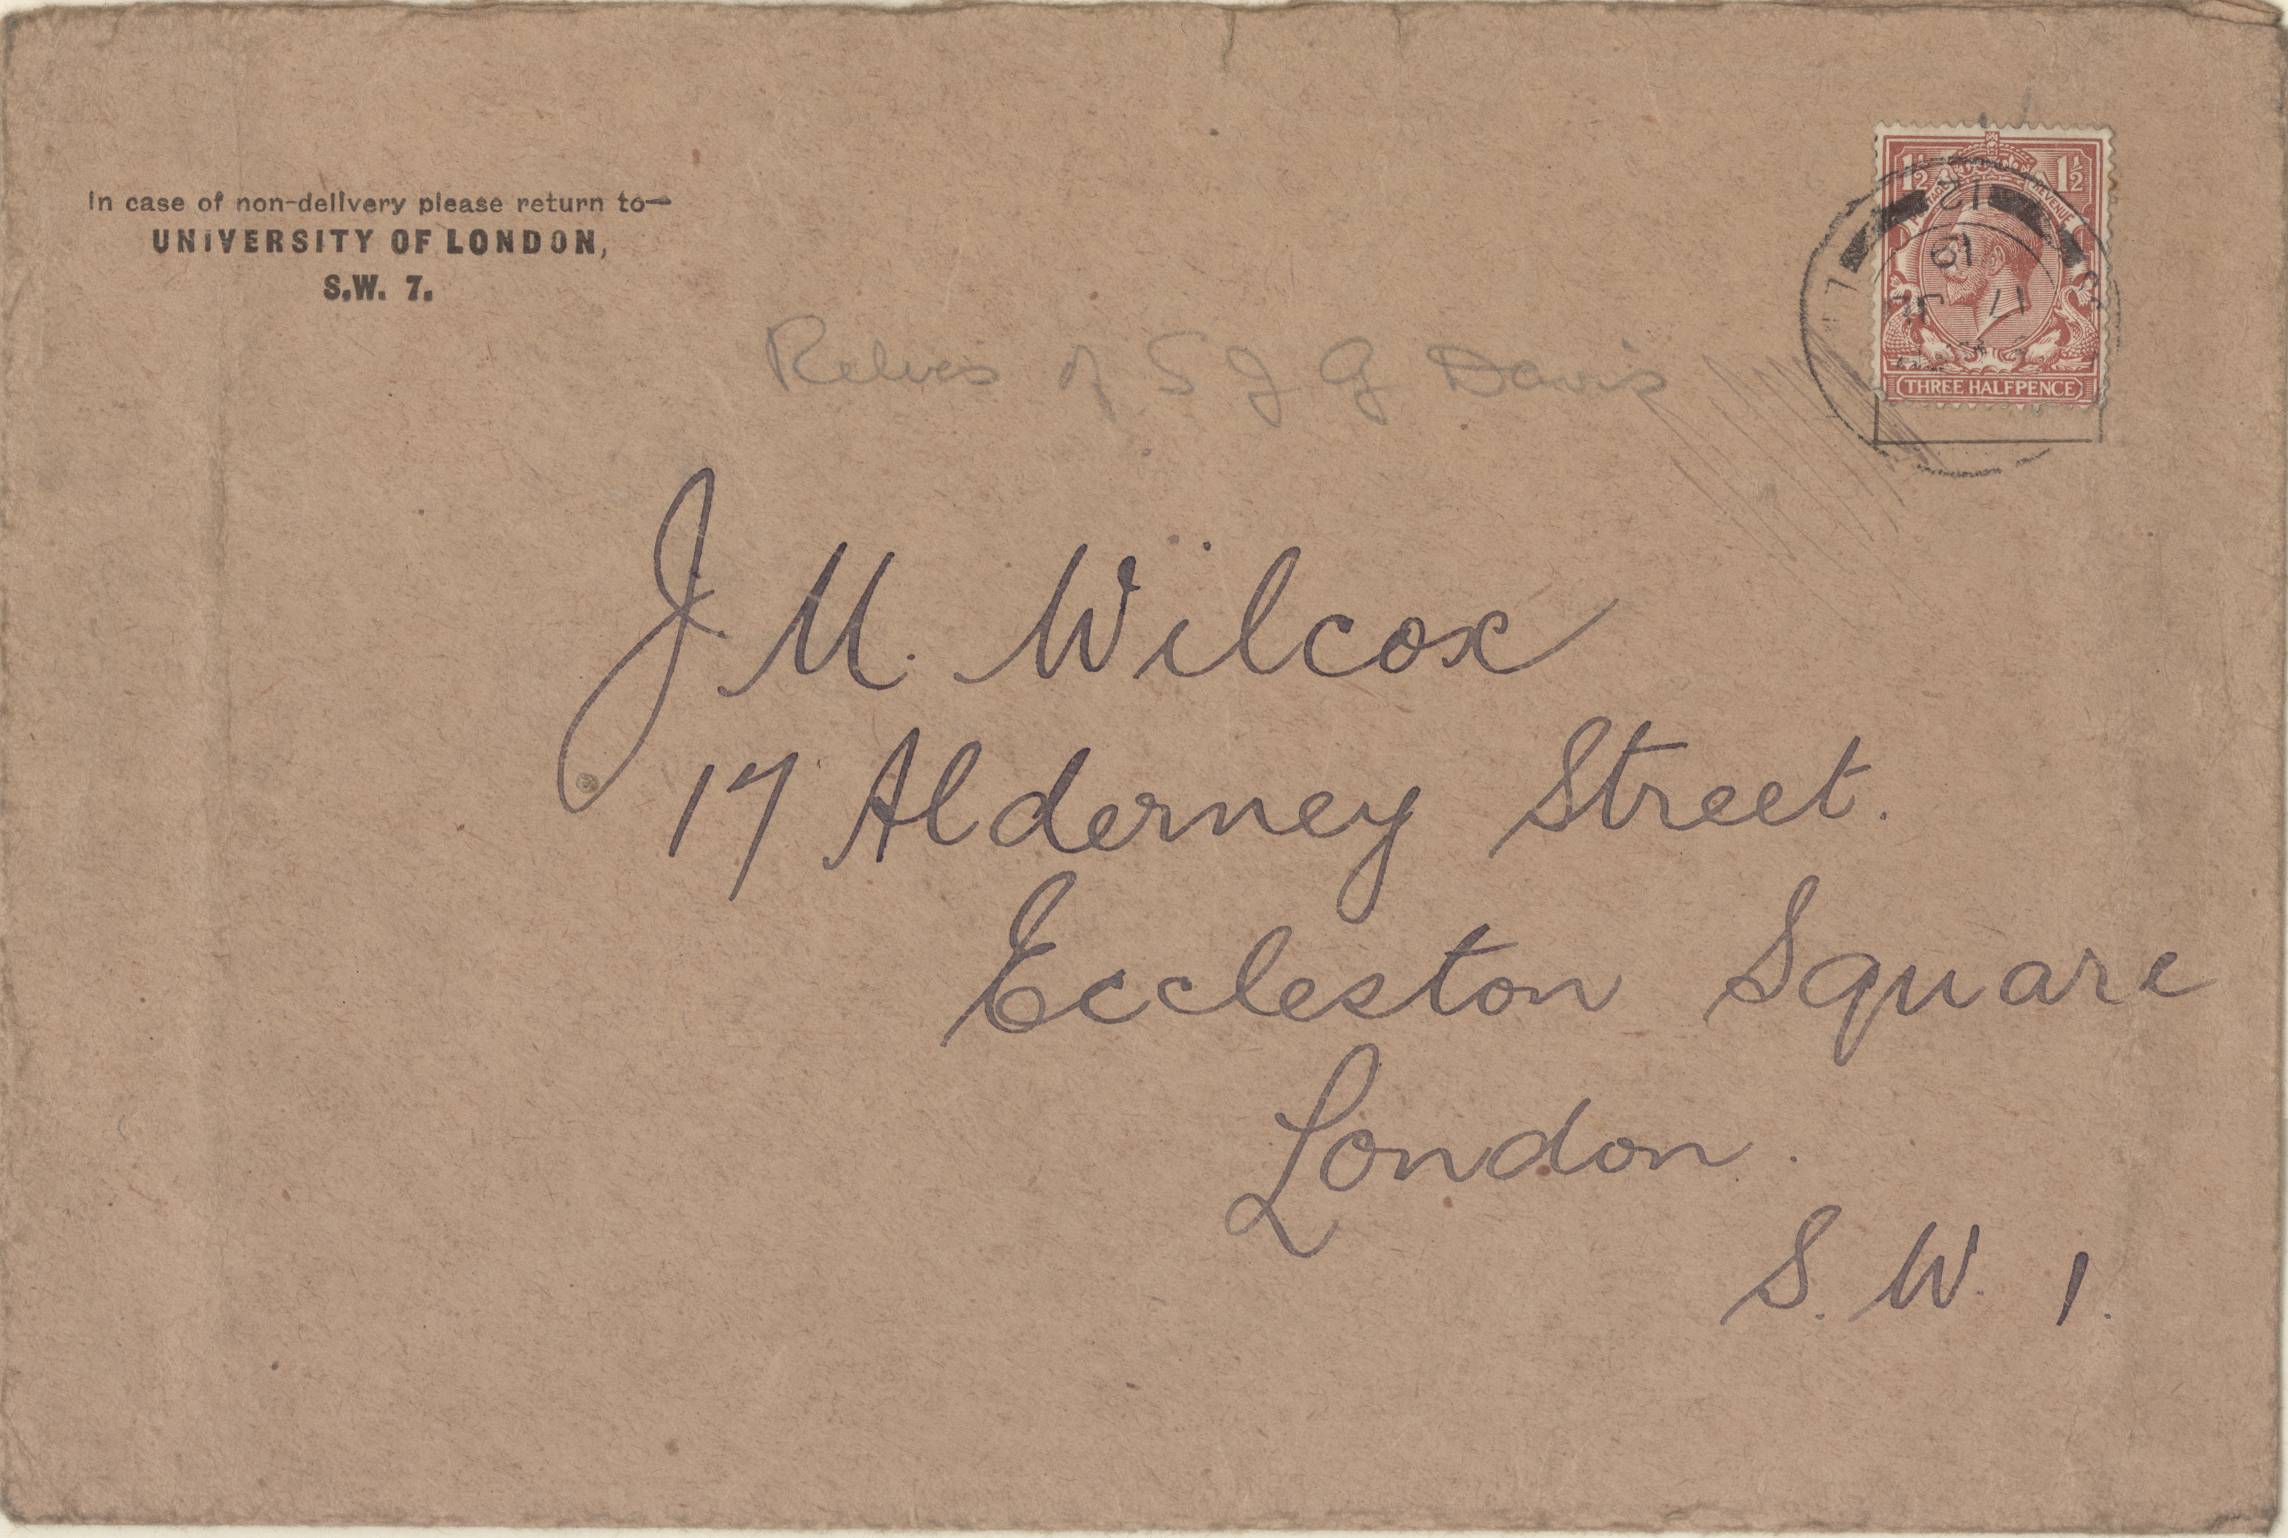 In case of non-delivery please return to—
UNIVERSITY OF LONDON,
S.W. 7.
1½ 1½
REVENUE
THREE HALFPENCE
of S J G Davis
J M. Wilcox
17 Alderney Street.
Eccleston Square
London.
S. W. 1.